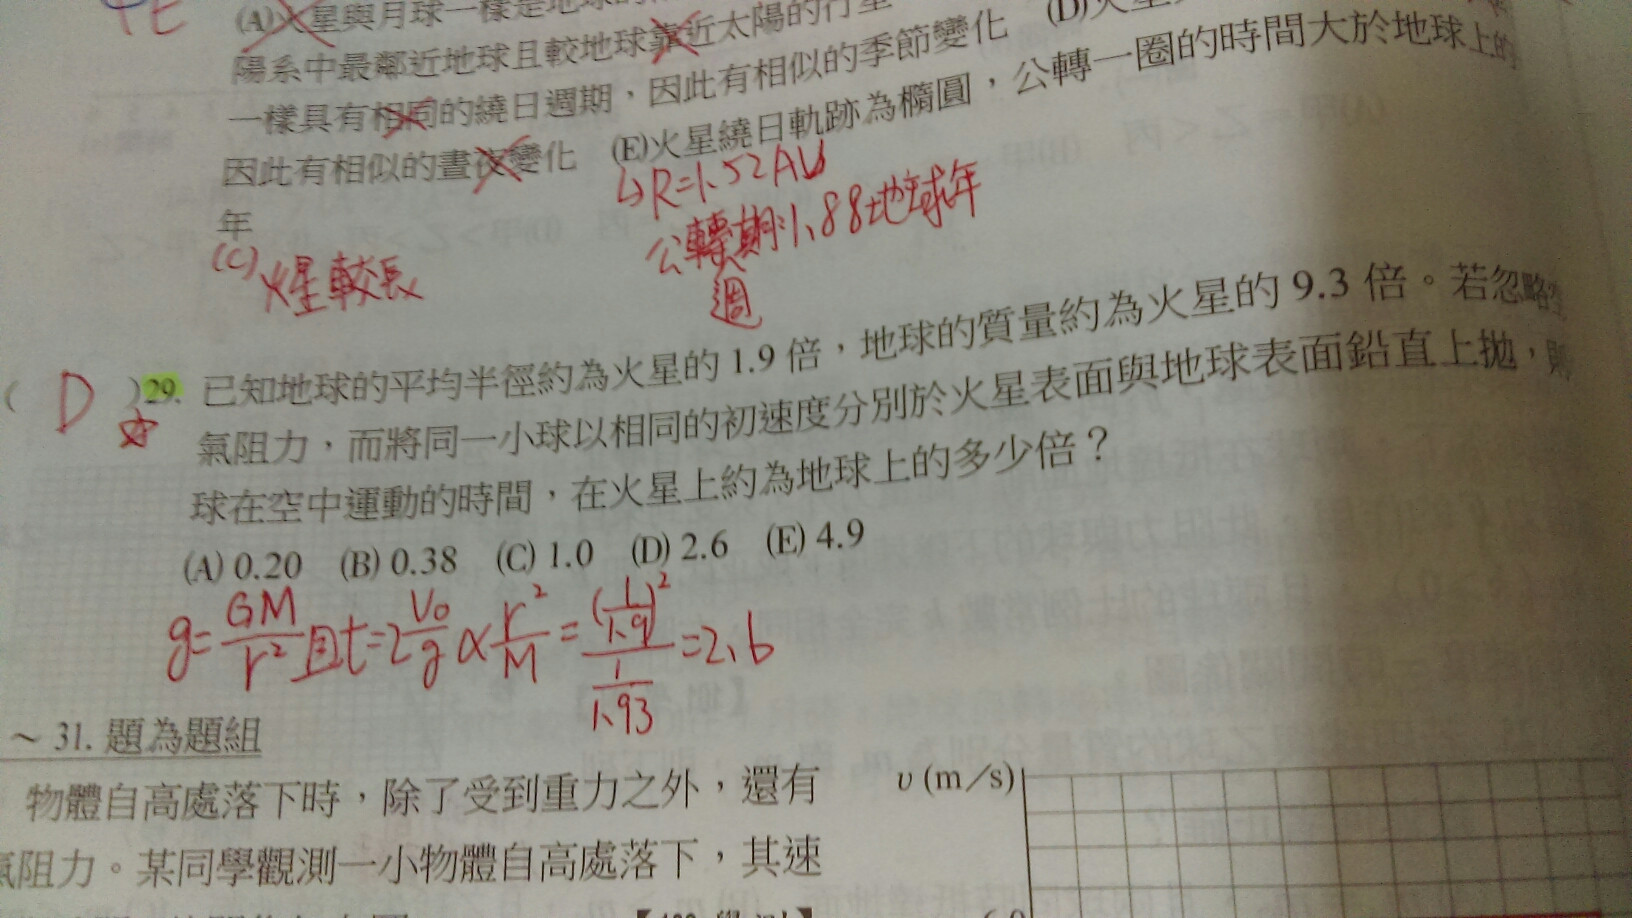 (A)火星與月球一樣是地球的
陽系中最鄰近地球且較地球靠近太陽的行星 (D)火星
一樣具有相同的繞日週期，因此有相似的季節變化
因此有相似的晝夜變化 (E)火星繞日軌跡為橢圓，公轉一圈的時間大於地球上的
年
↳R=1.52AU
公轉週期:1.88地球年
(C)火星較長
( D )29. 已知地球的平均半徑約為火星的 1.9 倍，地球的質量約為火星的 9.3 倍。若忽略空
氣阻力，而將同一小球以相同的初速度分別於火星表面與地球表面鉛直上拋，則
球在空中運動的時間，在火星上約為地球上的多少倍？
(A) 0.20 (B) 0.38 (C) 1.0 (D) 2.6 (E) 4.9
g=GM/r² 且t=2V₀/g∝r²/M=(1/1.9)²/(1/1.93)=2.6
～31. 題為題組
物體自高處落下時，除了受到重力之外，還有
氣阻力。某同學觀測一小物體自高處落下，其速
υ (m／s)
6.0